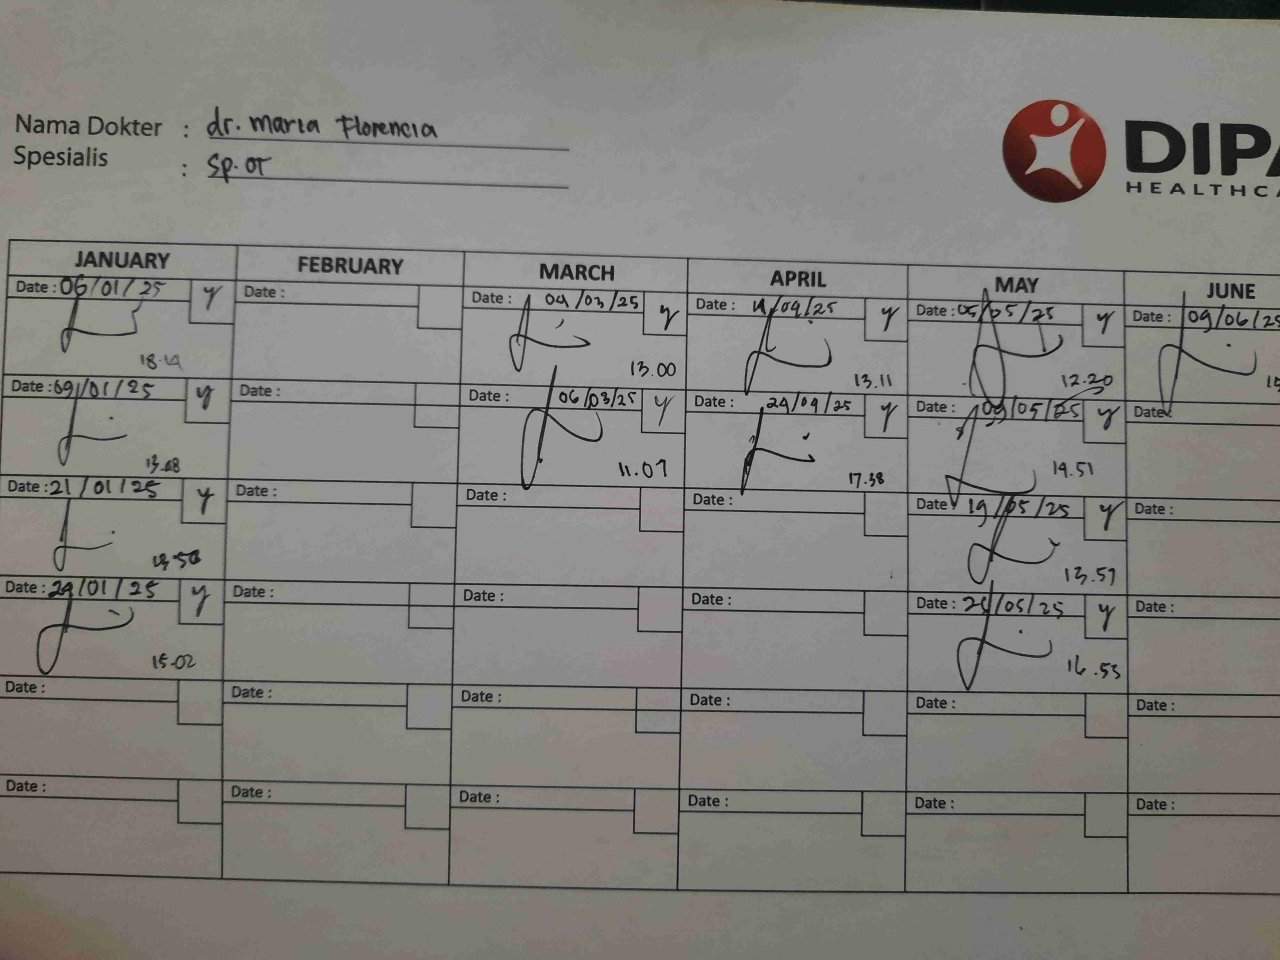 Nama Dokter : dr. Maria Florencia
Spesialis : Sp.OT
DIPA
HEALTHCA
JANUARY FEBRUARY MARCH APRIL MAY JUNE
Date : 06/01/25 y Date : Date : 04/03/25 y Date : /04/25 y Date : 05/05/25 y Date : 09/06/25
13.00 13.11 12.20
Date : 09/01/25 y Date : Date : 06/03/25 y Date : 24/04/25 y Date : 09/05/25 y Date
13.08 11.07 17.38 14.51
Date : 21/01/25 y Date : Date : Date : Date 19/05/25 y Date :
13.57
Date : 24/01/25 y Date : Date : Date : Date : 26/05/25 y Date :
15.02 16.53
Date : Date : Date : Date : Date : Date :
Date : Date : Date : Date : Date : Date :